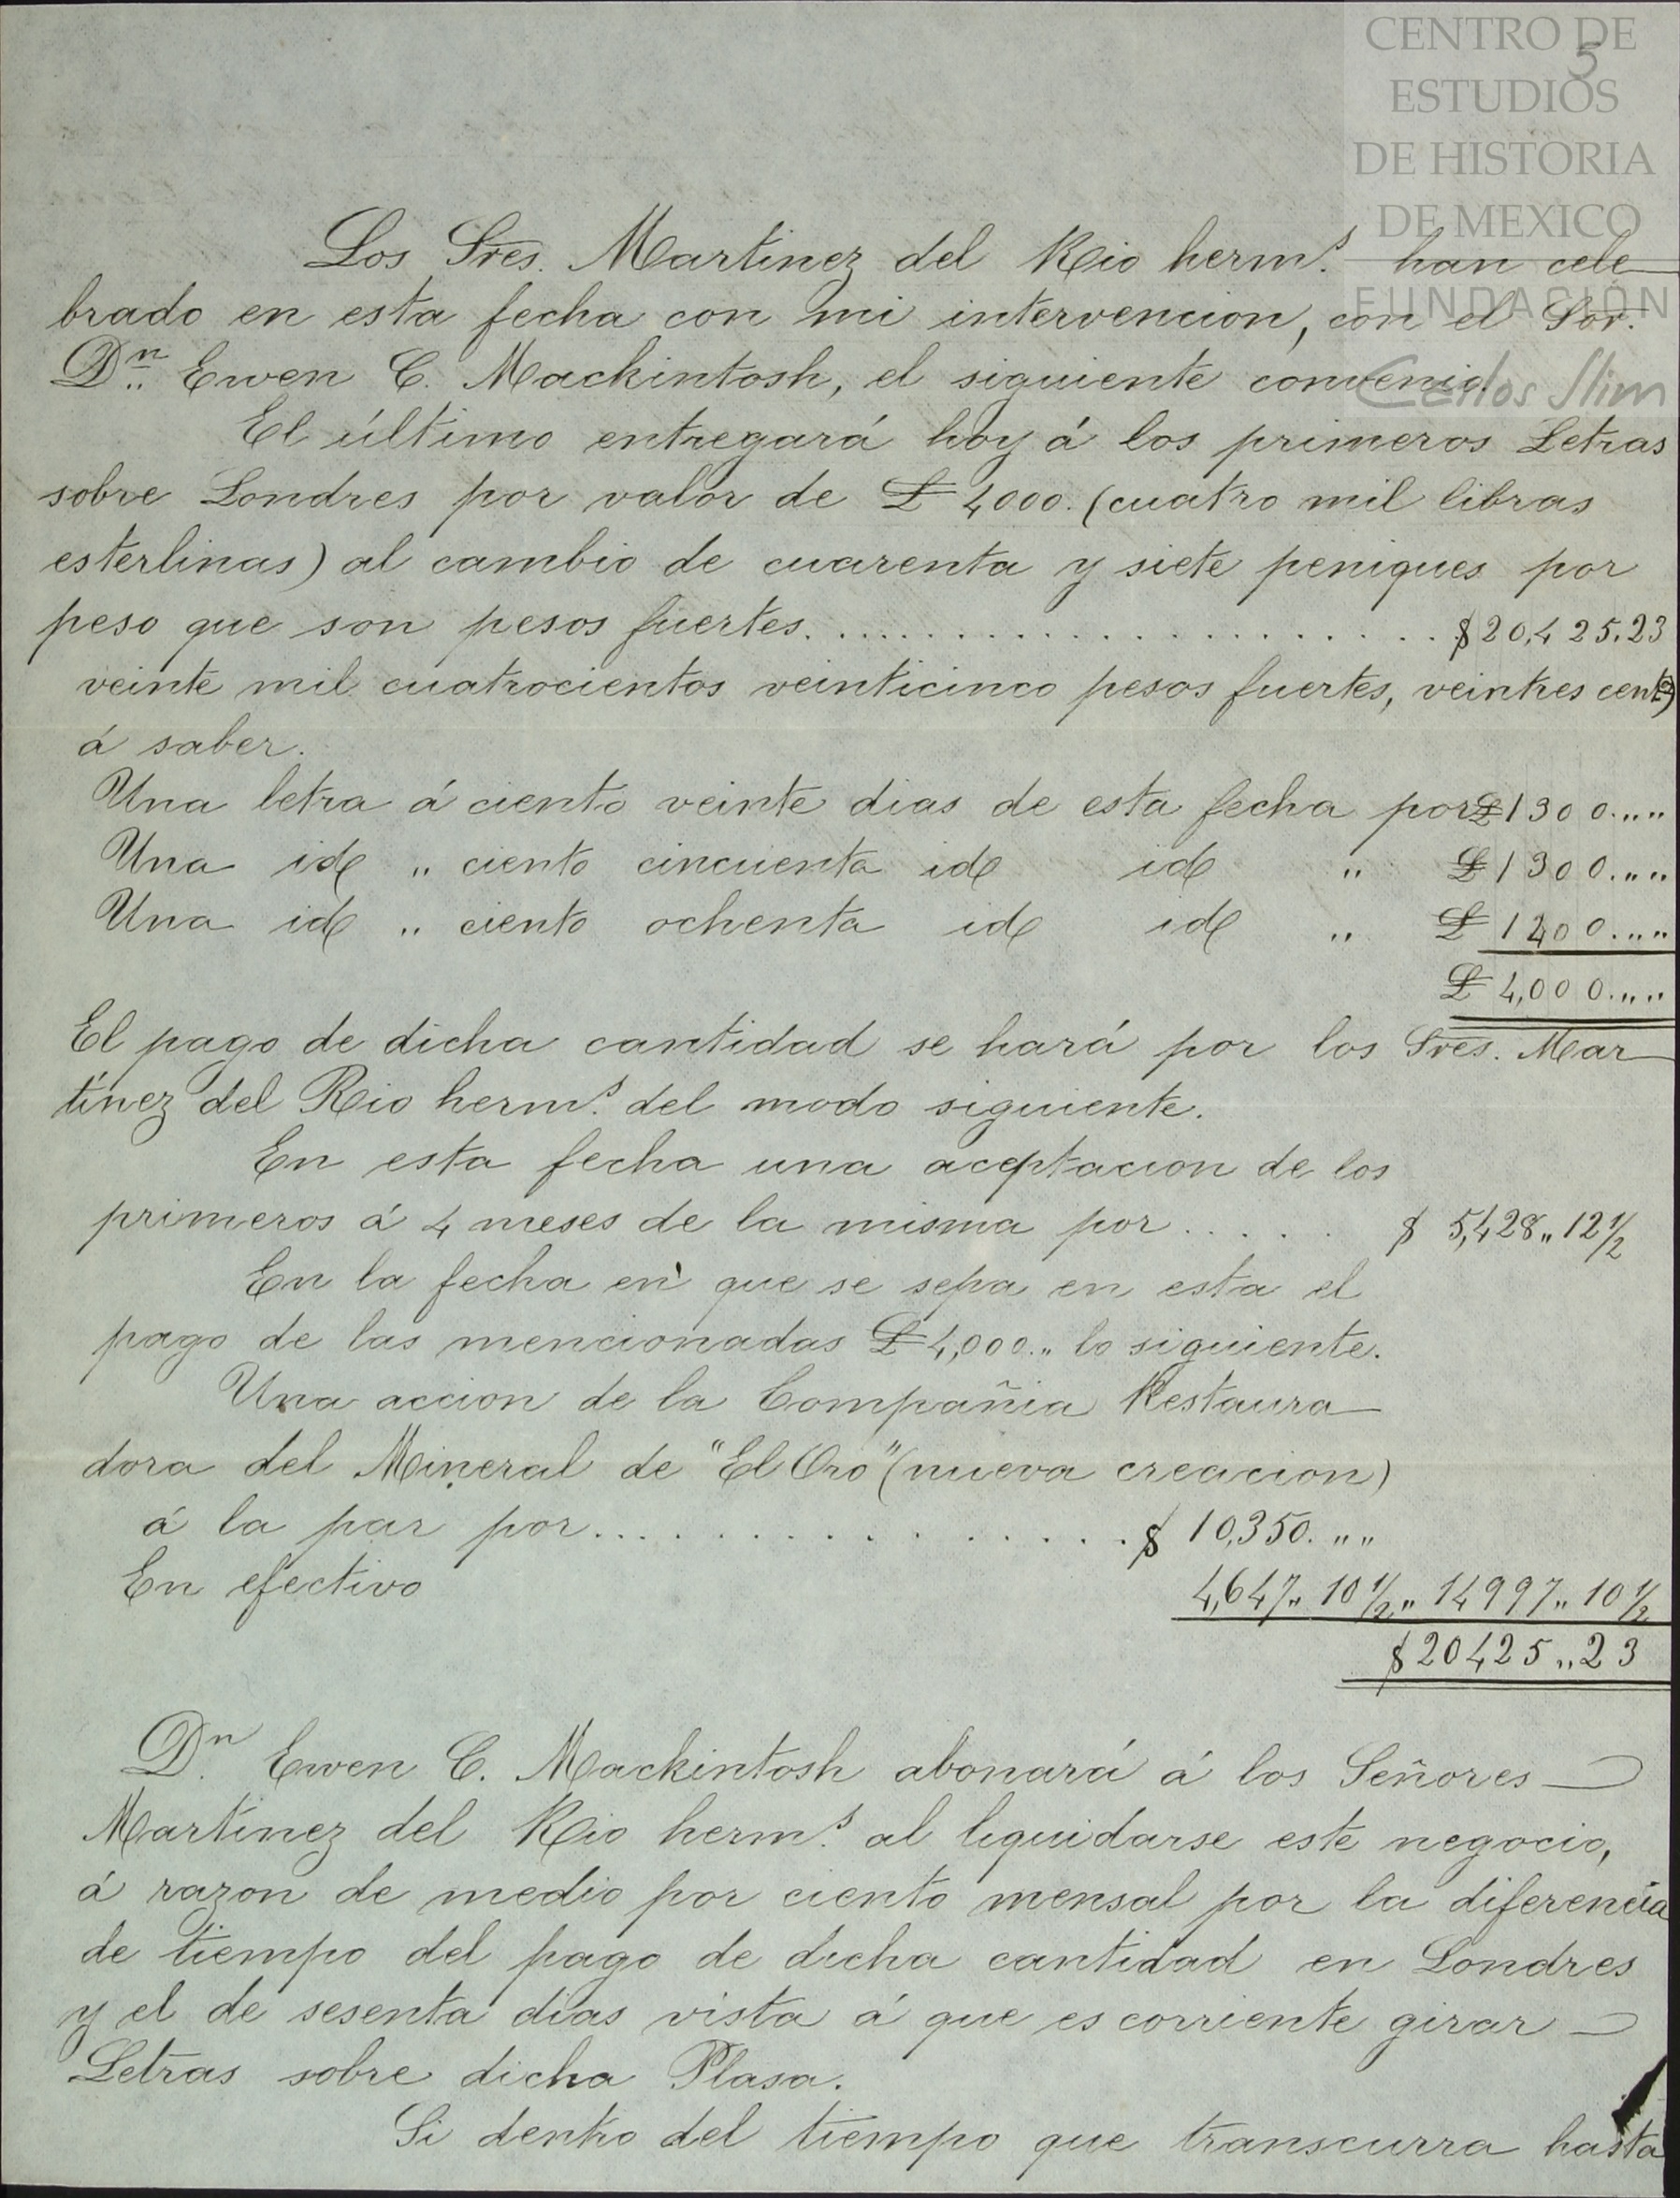 CENTRO DE
ESTUDIOS
DE HISTORIA
DE MEXICO
FUNDACIÓN
Carlos Slim
5
Los Sres. Martinez del Rio herms. han cele
brado en esta fecha con mi intervencion, con el Sor.
Dn. Ewen C. Mackintosh, el siguiente convenio
El último entregará hoy á los primeros Letras
sobre Londres por valor de £ 4000. (cuatro mil libras
esterlinas) al cambio de cuarenta y siete peniques por
peso que son pesos fuertes. . . . . . . . . . . . . . . . . . . . $20,425.23
veinte mil cuatrocientos veinticinco pesos fuertes, veintres cents
á saber.
Una letra á ciento veinte dias de esta fecha por £1300.,,,,
Una id ,, ciento cincuenta id id ,, £1300.,,,,
Una id ,, ciento ochenta id id ,, £ 1400.,,,,
£ 4,000.,,,,
El pago de dicha cantidad se hará por los Sres. Mar
tinez del Rio herms. del modo siguiente.
En esta fecha una aceptacion de los
primeros á 4 meses de la misma por . . . . . $ 5,428,, 12 1/2
En la fecha en que se sepa en esta el
pago de las mencionadas £4,000.,, lo siguiente.
Una accion de la Compañia Restaura
dora del Mineral de "El Oro" (nueva creacion)
á la par por. . . . . . . . . . . . . . . . $ 10,350. ,, ,,
En efectivo 4,647,, 10 1/2,, 14997,, 10 1/2
$20425,,23
Dn. Ewen C. Mackintosh abonará á los Señores
Martinez del Rio herms. al liquidarse este negocio,
á razon de medio por ciento mensal por la diferencia
de tiempo del pago de dicha cantidad en Londres
y el de sesenta dias vista á que es corriente girar
Letras sobre dicha Plasa.
Si dentro del tiempo que transcurra hasta